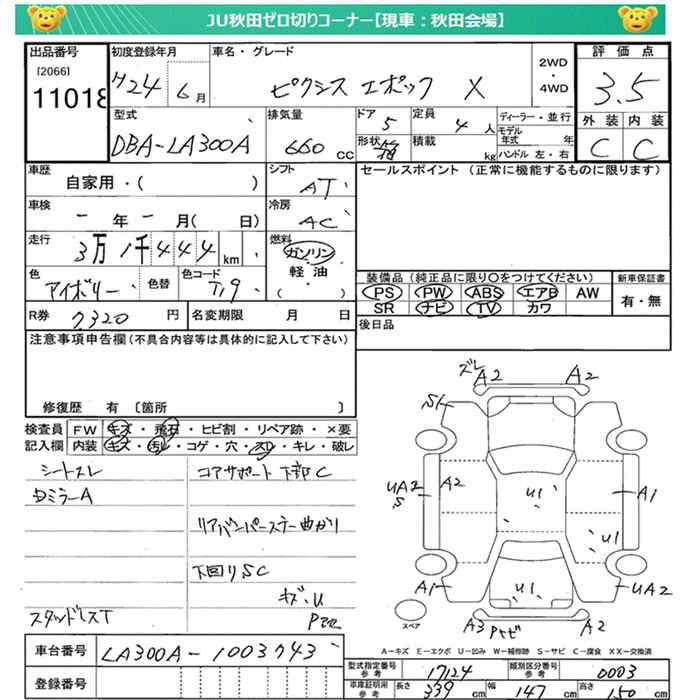 JU秋田ゼロ切りコーナー【現車：秋田会場】
出品番号 初度登録年月 車名・グレード 評価点
[2066] 11018 H24 6月 ピクシス エポック X 2WD・4WD 3.5
型式 排気量 ドア 定員 ディーラー・並行 外装 内装
DBA-LA300A 660cc 5 4人 モデル年式 年 C C
形状 箱 積載 kg ハンドル 左・右
車歴 シフト セールスポイント（正常に機能するものに限ります）
自家用・( ) AT
車検 冷房
－年－月( 日) AC
走行 燃料
3万1千444km ガソリン
軽油
・( )
色 色替 色コード 装備品（純正品に限り○をつけてください） 新車保証書
アイボリー T19 PS PW ABS エアB AW 有・無
SR ナビ TV カワ
R券 7320円 名変期限 月 日 後日品
注意事項申告欄(不具合内容等は具体的に記入して下さい)
修復歴 有〔箇所 〕
検査員 FW キズ・飛石・ヒビ割・リペア跡・×要
記入欄 内装 キズ・汚レ・コゲ・穴・スレ・キレ・破レ
シートスレ コアサポート下部C
Dミラー A
リアバンパーステー曲がり
下回りSC
キズ・U
スタッドレスT
ズレ A2 A2
S1
UA2 S A2 U1 A1
U1
A1 U1 UA2
A3 A2
スペア
A－キズ E－エクボ U－凹み W－補修跡 S－サビ C－腐食 XX－交換済
車台番号 LA300A-1003743
登録番号
型式指定番号 参考 17124 類別区分番号 参考 0003
車庫証明用 参考 長さ 339cm 幅 147cm 高さ 150cm